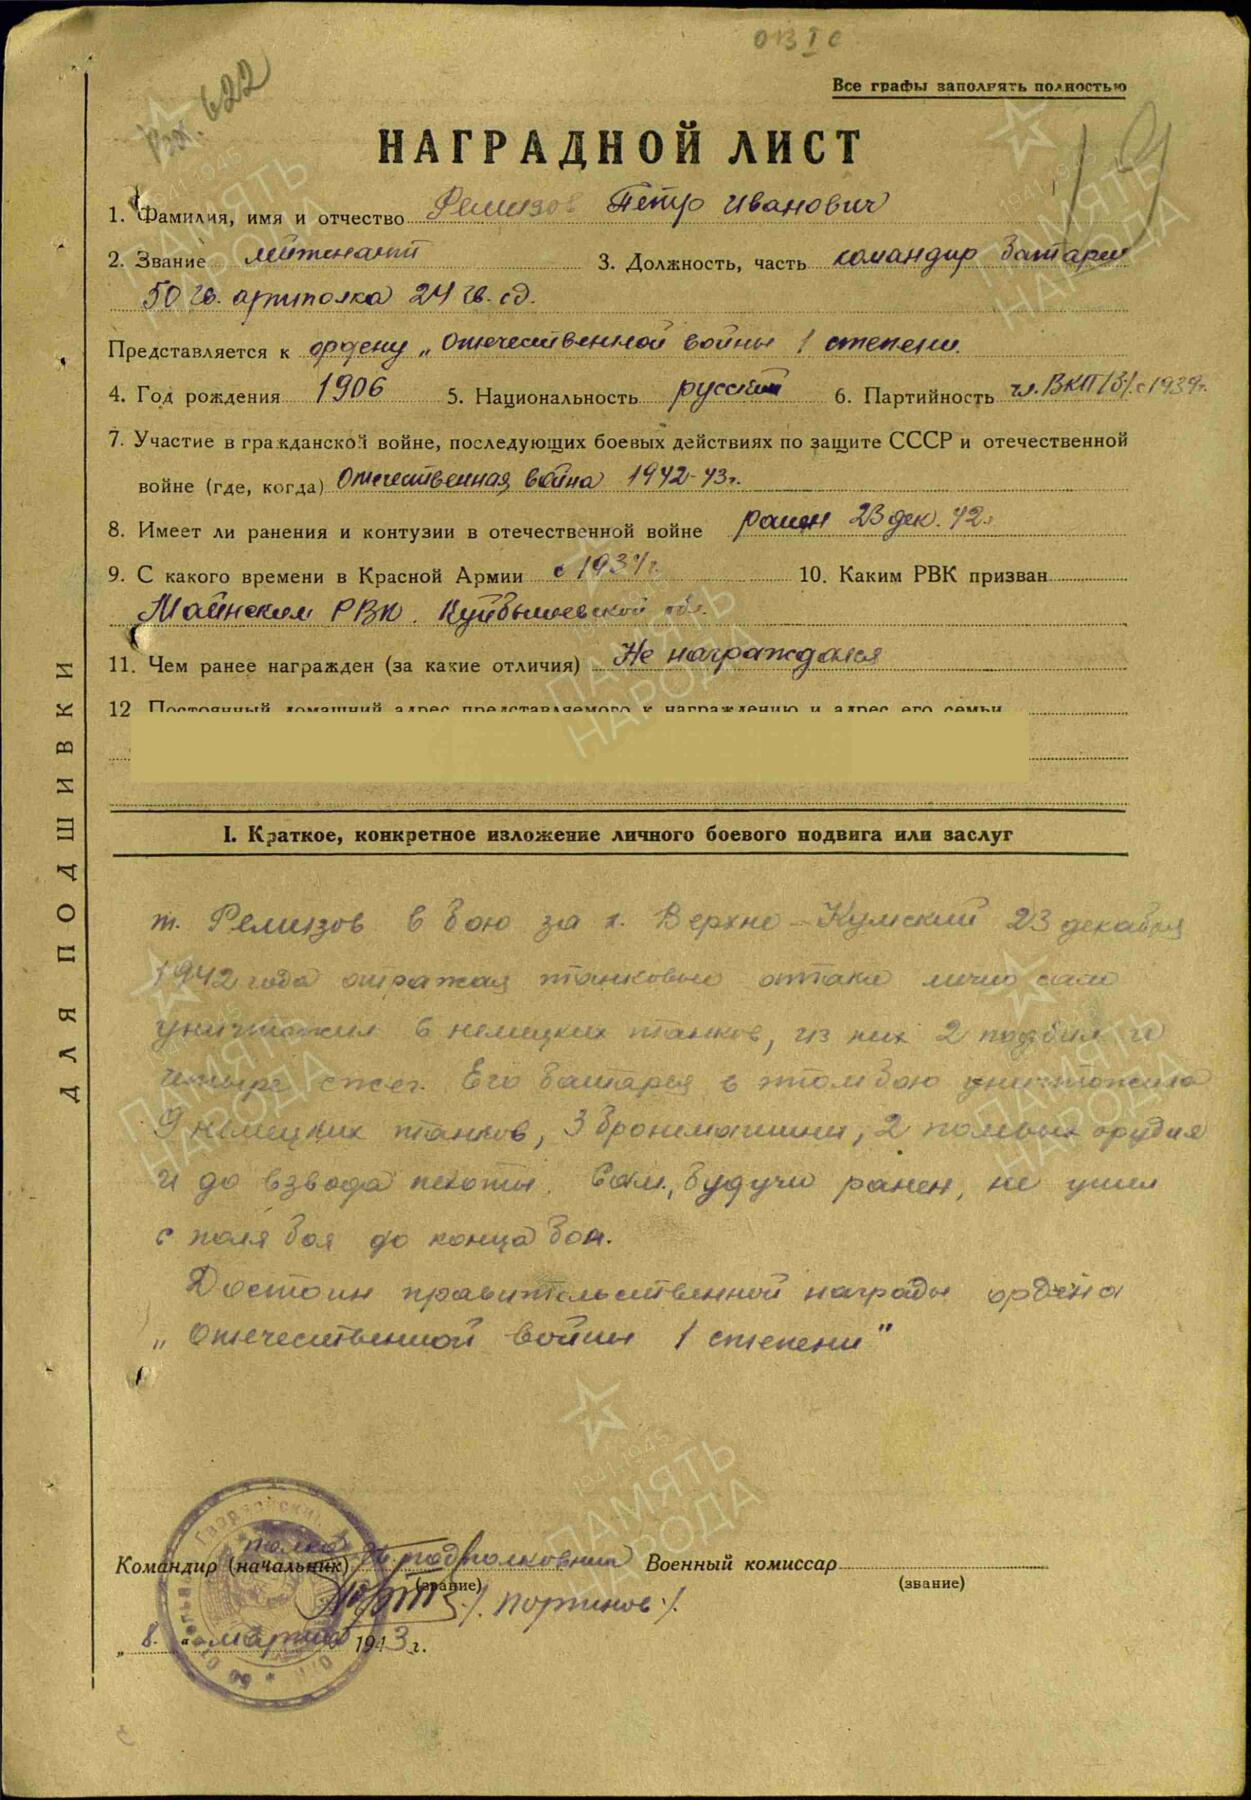 013 I с
Вх. 622
Все графы заполнять полностью
19
НАГРАДНОЙ ЛИСТ
1. Фамилия, имя и отчество Ремизов Петр Иванович
2. Звание лейтенант 3. Должность, часть командир батареи
50 гв. артполка 24 гв. сд.
Представляется к ордену „Отечественной войны 1 степени.
4. Год рождения 1906 5. Национальность русский 6. Партийность чл. ВКП/б/. с 1939г.
7. Участие в гражданской войне, последующих боевых действиях по защите СССР и отечественной
войне (где, когда) Отечественная война 1942-43г.
8. Имеет ли ранения и контузии в отечественной войне ранен 23 дек. 42г
9. С какого времени в Красной Армии с 1934г 10. Каким РВК призван
Майнским РВК. Куйбышевской обл.
11. Чем ранее награжден (за какие отличия) Не награждался
12 Постоянный домашний адрес представляемого к награждению и адрес его семьи
I. Краткое, конкретное изложение личного боевого подвига или заслуг
т. Ремизов в бою за х. Верхне-Кумский 23 декабря
1942 года отражая танковые аттаки лично сам
уничтожил 6 немецких танков, из них 2 подбил и
четыре сжег. Его батарея в этом бою уничтожила
9 немецких танков, 3 бронемашины, 2 полевых орудия
и до взвода пехоты. Сам, будучи ранен, не ушел
с поля боя до конца боя.
Достоин правительственной награды ордена
„Отечественной войны 1 степени"
Командир (начальник) полка гв. подполковник Военный комиссар
(звание) (звание)
/Портнов/.
„8." марта 1943 г.
ДЛЯ ПОДШИВКИ
ПАМЯТЬ НАРОДА
1941-1945